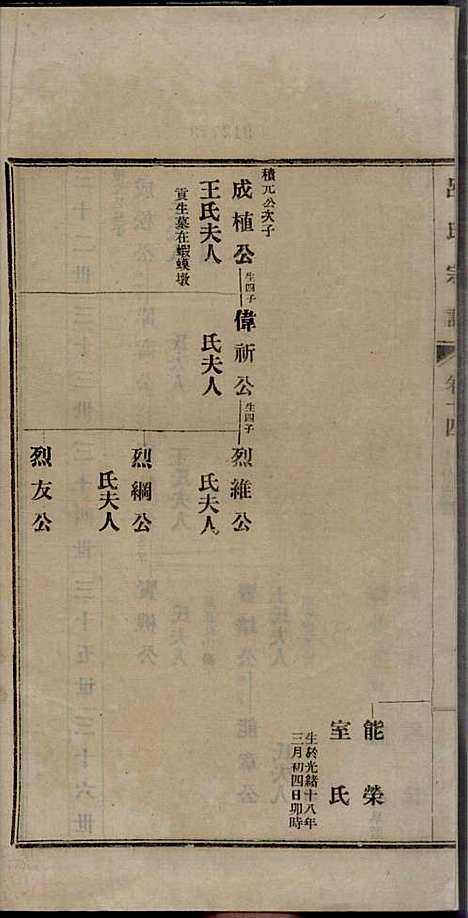 呂氏宗譜
卷十四
能榮
室氏
生於光緒十八年
三月初四日卯時
積元公次子
成植公
生四子
王氏夫人
貢生墓在蝦蟆墩
偉祈公
生四子
氏夫人
烈維公
氏夫人
烈綱公
氏夫人
烈友公